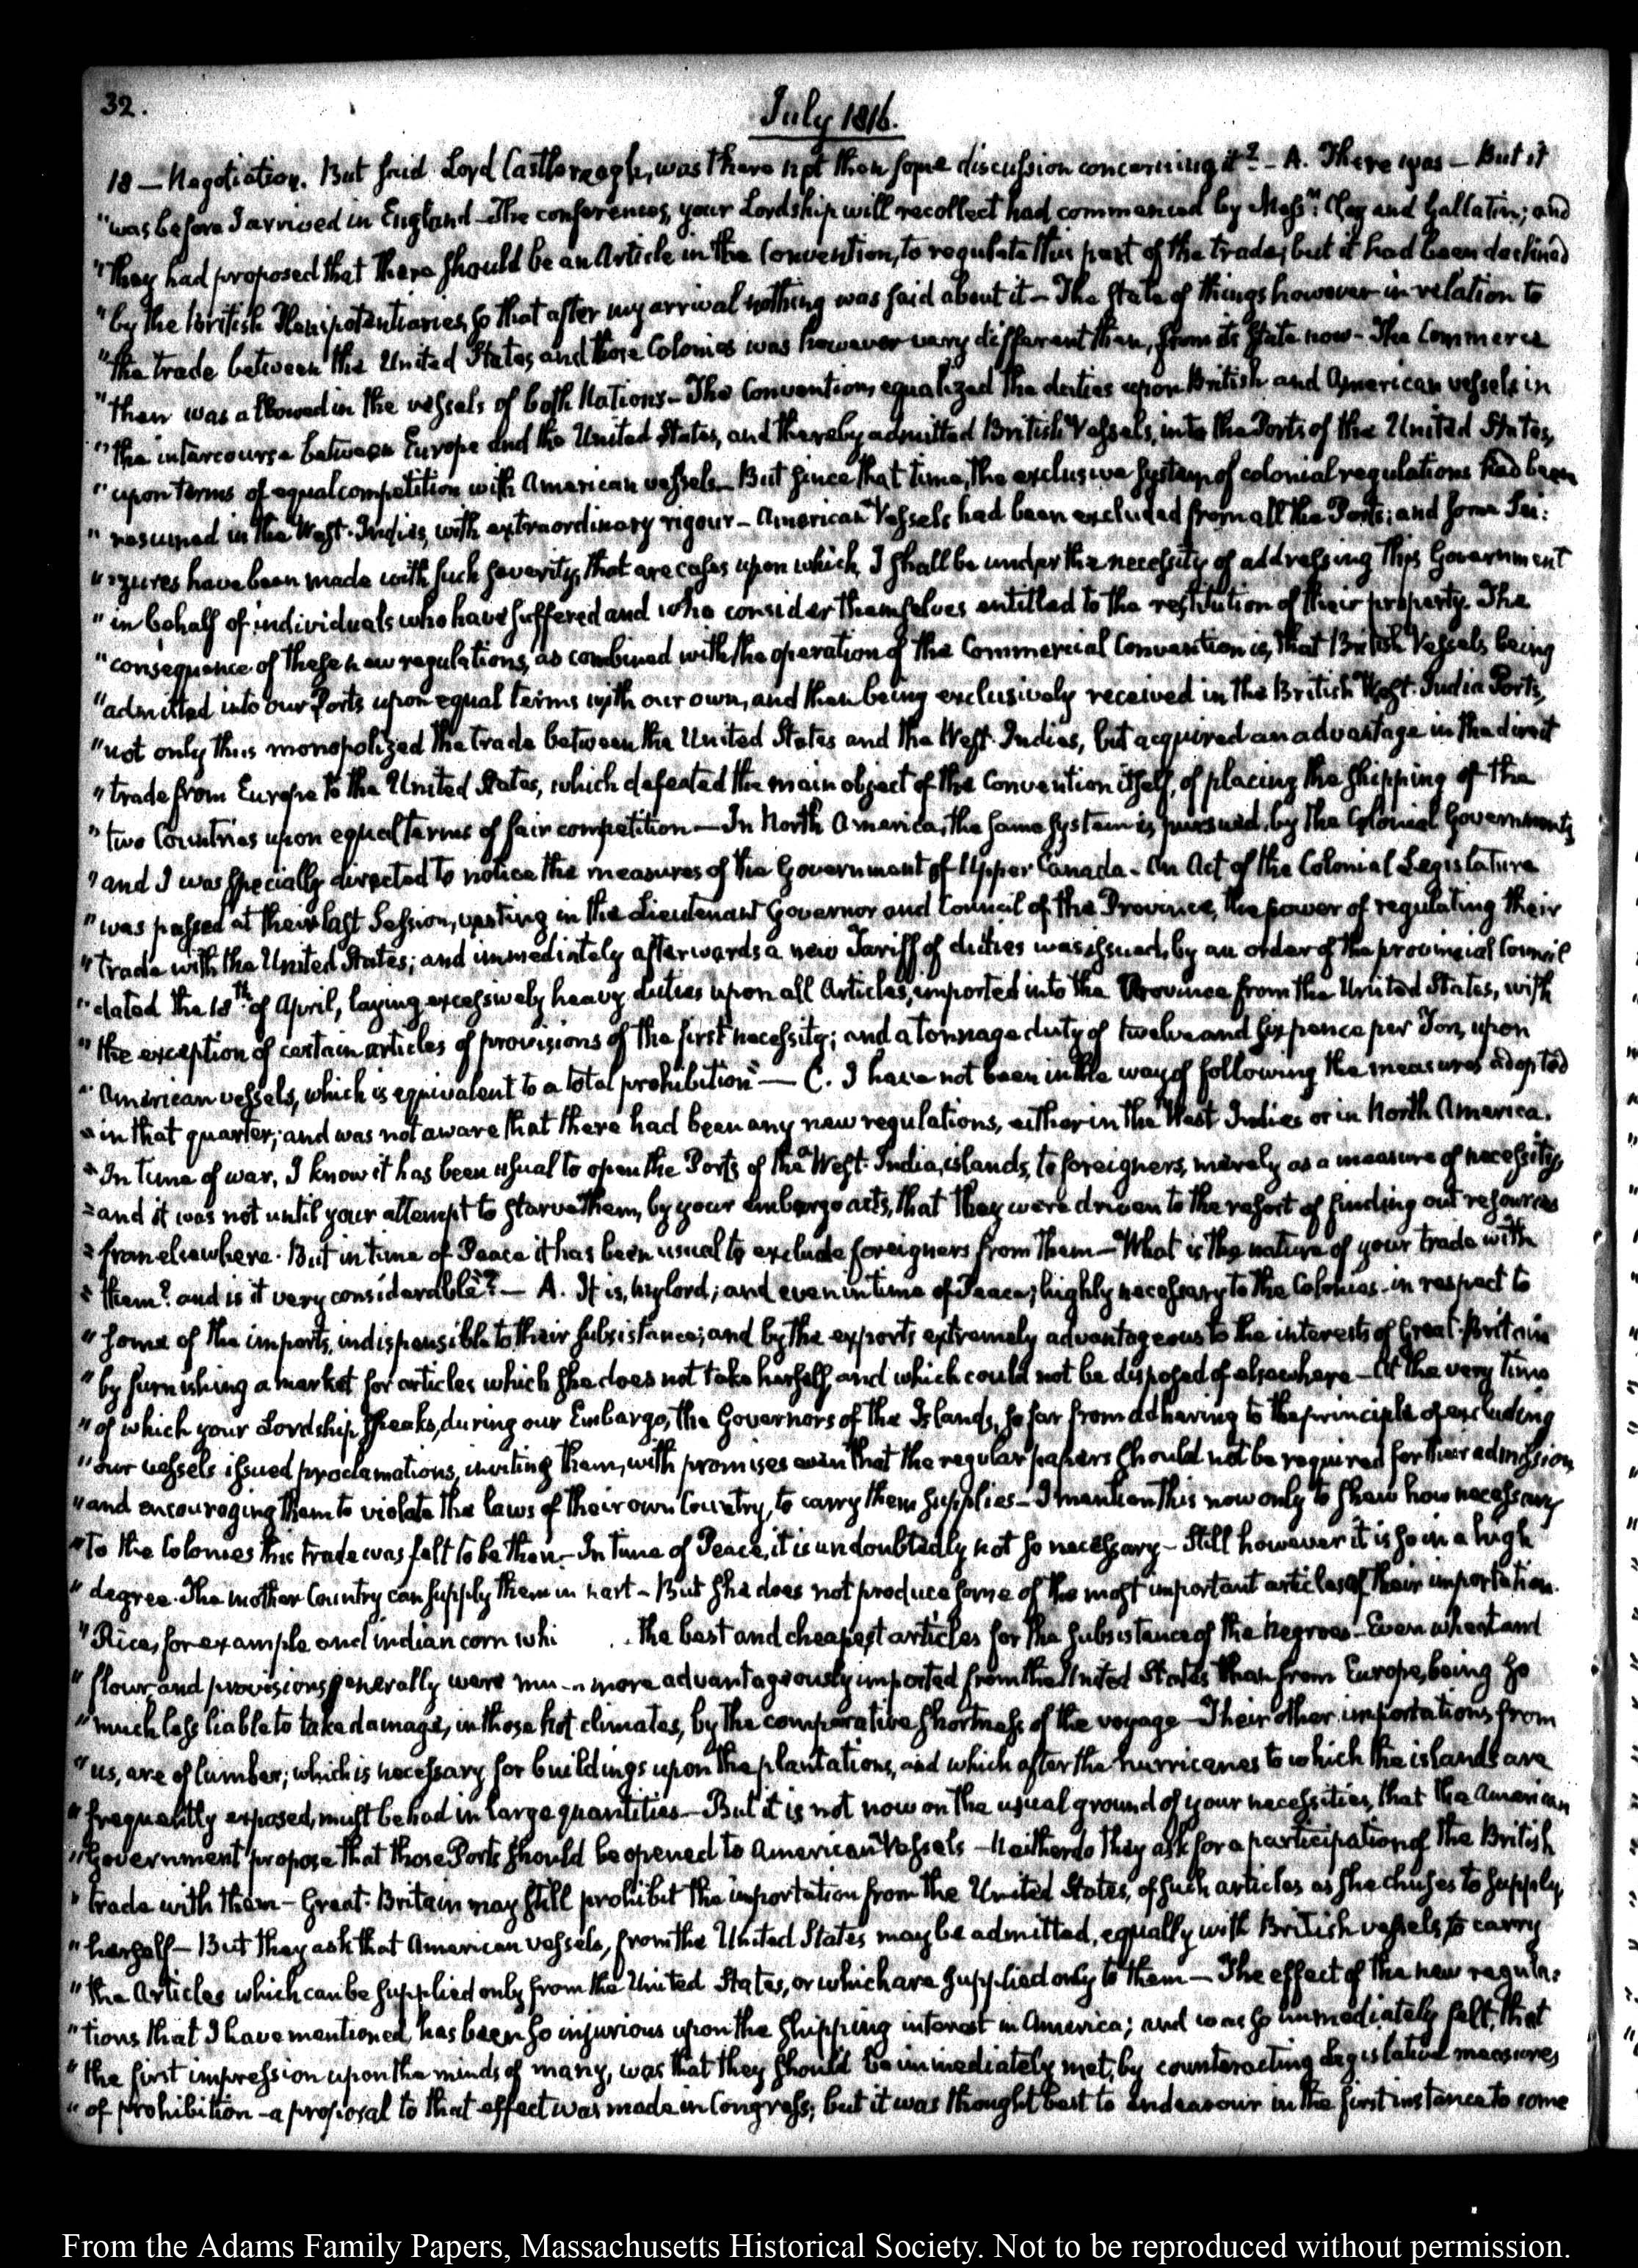 32.
July 1816.
18 — Negotiation. But said Lord Castlereagh, was there not then some discussion concerning it? — A. There was — But it
"was before I arrived in England — The conferences, your Lordship will recollect had commenced by Messrs: Clay and Gallatin; and
"they had proposed that there should be an Article in the Convention, to regulate this part of the trade; but it had been declined
"by the British Plenipotentiaries, so that after my arrival nothing was said about it — The state of things however in relation to
"the trade between the United States and those Colonies was however very different then, from its state now — The Commerce
"then was allowed in the vessels of both Nations — The Convention, equalized the duties upon British and American vessels in
"the intercourse between Europe and the United States, and thereby admitted British Vessels, into the Ports of the United States,
"upon terms of equal competition with American vessels — But since that time, the exclusive system of colonial regulations had been
"resumed in the West-Indies, with extraordinary rigour — American Vessels had been excluded from all the Ports; and some Sei:
"zures have been made with such severity, that are cases upon which, I shall be under the necessity of addressing this Government
"in behalf of individuals who have suffered and who consider themselves entitled to the restitution of their property. The
"consequence of these new regulations, as combined with the operation of the Commercial Convention is, that British Vessels being
"admitted into our Ports upon equal terms with our own, and then being exclusively received in the British West-India Ports,
"not only thus monopolized the trade between the United States and the West-Indies, but acquired an advantage in the direct
"trade from Europe to the United States, which defeated the main object of the Convention itself, of placing the shipping of the
"two Countries upon equal terms of fair competition — In North America, the same system is pursued, by the Colonial Governments
"and I was specially directed to notice the measures of the Government of Upper Canada — An Act of the Colonial Legislature
"was passed at their last Session, vesting in the Lieutenant Governor and Council of the Province, the power of regulating their
"trade with the United States; and immediately afterwards a new Tariff of duties was issued, by an order of the provincial Council
"dated the 18th. of April, laying excessively heavy duties upon all Articles, imported into the Province from the United States, with
"the exception of certain articles of provisions of the first necessity; and a tonnage duty of twelve and sixpence per Ton, upon
"American vessels, which is equivalent to a total prohibition" — C. I have not been in the way of following the measures adopted
"in that quarter; and was not aware that there had been any new regulations, either in the West Indies or in North America.
"In time of war, I know it has been usual to open the Ports of the West-India islands, to foreigners, merely as a measure of necessity,
"and it was not until your attempt to starve them, by your embargo acts, that they were driven to the resort of finding out resources
"from elsewhere. But in time of Peace it has been usual to exclude foreigners from them — What is the nature of your trade with
"them? and is it very considerable?" — A. It is, my lord; and even in time of Peace; highly necessary to the Colonies — in respect to
"some of the imports, indispensible to their subsistance; and by the exports extremely advantageous to the interests of Great-Britain
"by furnishing a market for articles which she does not take herself, and which could not be disposed of elsewhere — At the very time
"of which your Lordship speaks, during our Embargo, the Governors of the Islands, so far from adhering to the principle of excluding
"our vessels issued proclamations, inviting them, with promises even that the regular papers should not be required for their admission,
"and encouraging them to violate the laws of their own Country, to carry them supplies — I mention this now only to shew how necessary
"to the Colonies this trade was felt to be then — In time of Peace, it is undoubtedly not so necessary — Still however it is so in a high
"degree. The mother Country can supply them in part — But she does not produce some of the most important articles of their importation.
"Rice, for example and indian corn whi the best and cheapest articles for the subsistance of the Negroes — Even wheat and
"flour, and provisions generally were mu more advantageously imported from the United States than from Europe, being so
"much less liable to take damage, in those hot climates, by the comparative shortness of the voyage — Their other importations from
"us, are of lumber; which is necessary for buildings upon the plantations, and which after the hurricanes to which the islands are
"frequently exposed, must be had in large quantities — But it is not now on the usual ground of your necessities, that the American
"Government propose that those Ports should be opened to American Vessels — Neither do they ask for a participation of the British
"trade with them — Great-Britain may still prohibit the importation from the United States, of such articles as she chuses to supply,
"herself — But they ask that American vessels, from the United States may be admitted, equally with British vessels, to carry
"the Articles which can be supplied only from the United States, or which are supplied only to them — The effect of the new regula:
"tions that I have mentioned, has been so injurious upon the shipping interest in America; and was so immediately felt, that
"the first impression upon the minds of many, was that they should be immediately met, by counteracting Legislative measures
"of prohibition — a proposal to that effect was made in Congress; but it was thought best to endeavour in the first instance to some
From the Adams Family Papers, Massachusetts Historical Society. Not to be reproduced without permission.